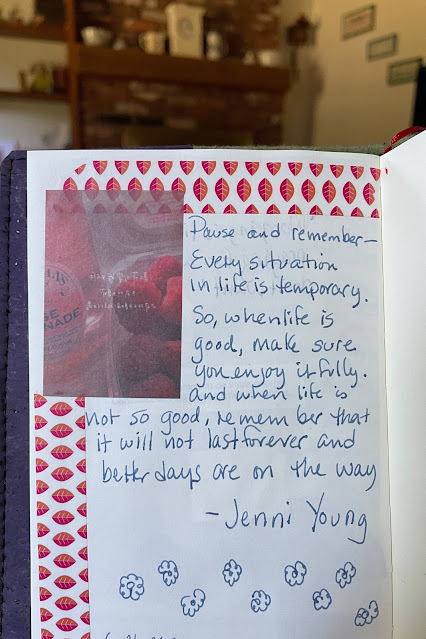 Pause and remember—
Every situation
in life is temporary.
So, when life is
good, make sure
you enjoy it fully.
and when life is
not so good, remember that
it will not last forever and
better days are on the way
- Jenni Young